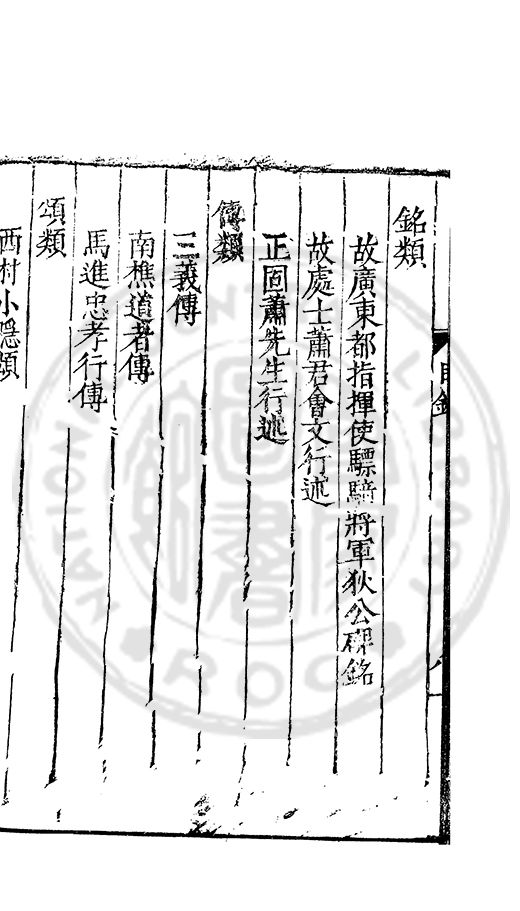 銘類
故廣東都指揮使驃騎將軍狄公碑銘
故處士蕭君會文行述
正固蕭先生行述
傳類
三義傳
南樵道者傳
馬進忠孝行傳
頌類
西村小隱頌